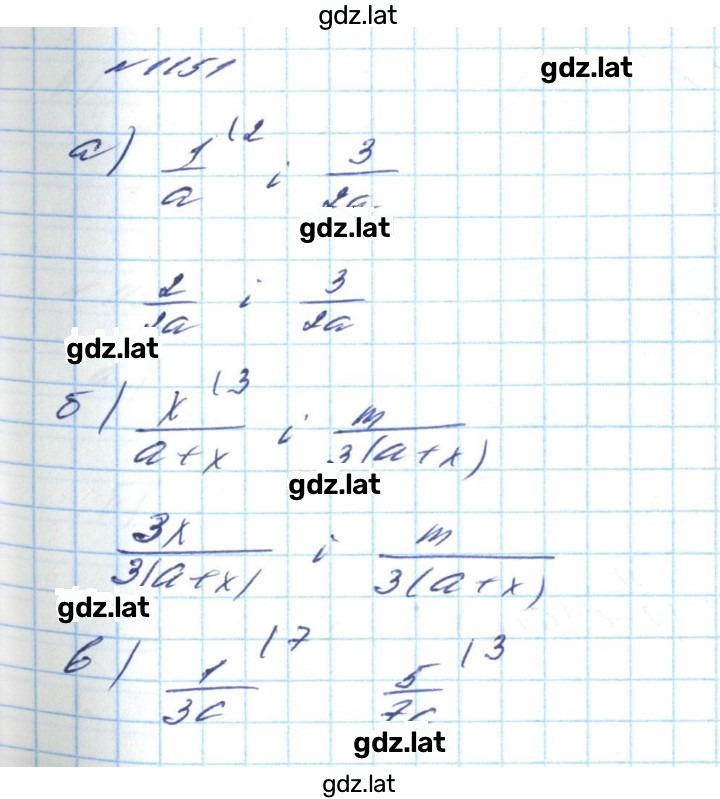 gdz.lat
№1151
gdz.lat
а) 1/a (2 і 3/2a
gdz.lat
2/2a і 3/2a
gdz.lat
б) x/a+x (3 і m/3(a+x)
gdz.lat
3x/3(a+x) і m/3(a+x)
gdz.lat
в) 1/3c (7 5/7c (3
gdz.lat
gdz.lat